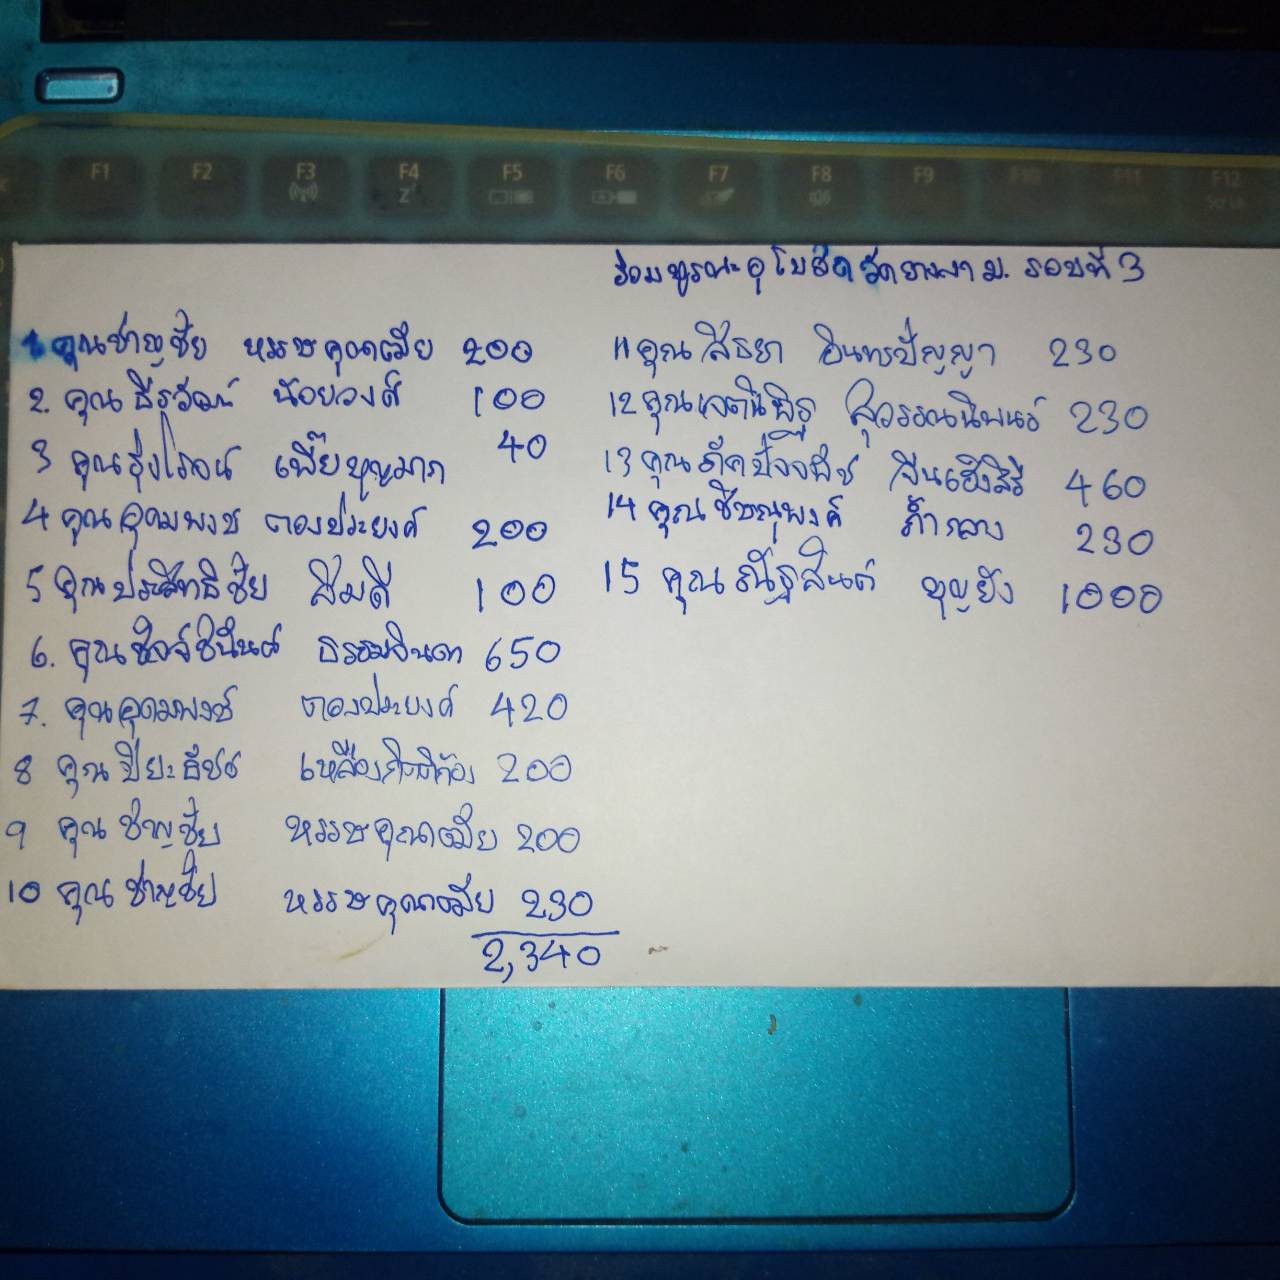 F1 F2 F3 F4 F5 F6 F7 F8 F9 F10 F11 F12
Z
Scr Lk
ร่วมบูรณะอุโบสถวัด ม. รอบที่ 3
1 คุณชาญชัย หรรษคุณาฒัย 200
2. คุณธีรวัฒน์ น้อยวงศ์ 100
3 คุณรุ่งโรจน์ เพี๊ยบุญมาก 40
4 คุณอุดมพงษ ตองประยงค์ 200
5 คุณประสิทธิชัย สิมดี 100
6. คุณ ธรรมจินดา 650
7. คุณอุดมพงษ์ ตองประยงค์ 420
8 คุณ ปิยะธัชช์ 200
9 คุณ ชาญชัย หรรษคุณาฒัย 200
10 คุณ ชาญชัย หรรษคุณาฒัย 230
2,340
11 คุณ สิธยา อินทรปัญญา 230
12 คุณเจตนิพิฐ สุวรรณนิพนธ์ 230
13 คุณ 460
14 คุณ ชิษณุพงค์ ถ้ำกลาง 230
15 คุณ ณัฐสันต์ บุญยัง 1000